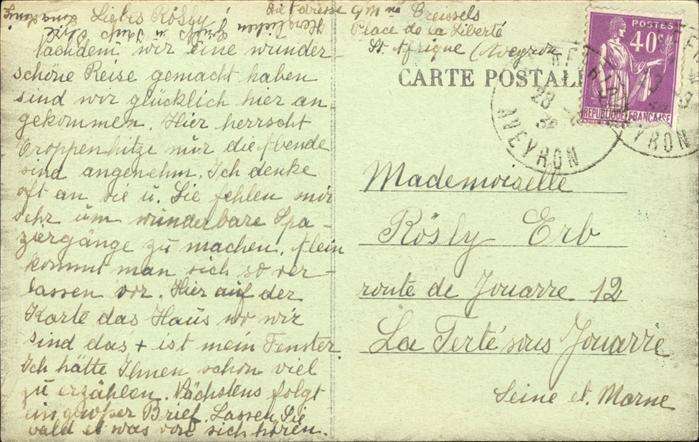 Liebes Rösly!
Nachdem wir eine wunder
schöne Reise gemacht haben
sind wir glücklich hier an-
gekommen. Hier herrscht
Troppenhitze nur die Abende
sind angenehm. Ich denke
oft an Sie u. Sie fehlen mir
sehr um wunderbare Spa-
ziergänge zu machen. Allein
kommt man sich so ver-
lassen vor. Hier auf der
Karte das Haus wo wir
sind das + ist mein Fenster.
Ich hätte Ihnen schon viel
zu erzählen. Nächstens folgt
ein grosser Brief. Lassen Sie
bald etwas von sich hören.
Herzlichen
Adresse Mme Breussels
Place de la Liberté
St Afrique (Aveyron
CARTE POSTALE
POSTES
40c
REPUBLIQUE FRANÇAISE
AVEYRON
Mademoiselle
Rösly Erb
route de Jouarre 12
La Ferté sous Jouarre
Seine et Marne